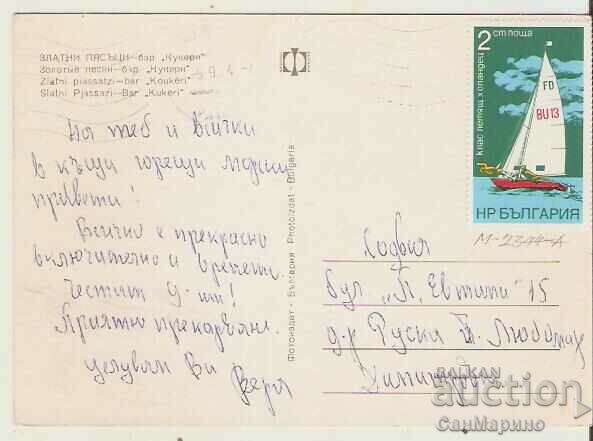 ЗЛАТНИ ПЯСЪЦИ—бар „Кукери"
Золотые пески—бар „Кукери"
Zlatni piassatzi—bar "Koukeri"
Slatni Pjassazi—Bar "Kukeri"
На теб и всички
в къщи горещи морски
привети!
Всичко е прекрасно
включително и времето.
Честит 9-ти!
Приятно прекарване.
целувам Ви Вера
Фотоиздат · България Photoizdat · Bulgaria
2 ст поща
клас летящ холандец
FD
BU 13
НР БЪЛГАРИЯ
М-2344-А
София
бул. „П. Евтими" 15
д-р Руска
BALKAN
auction
СанМарино